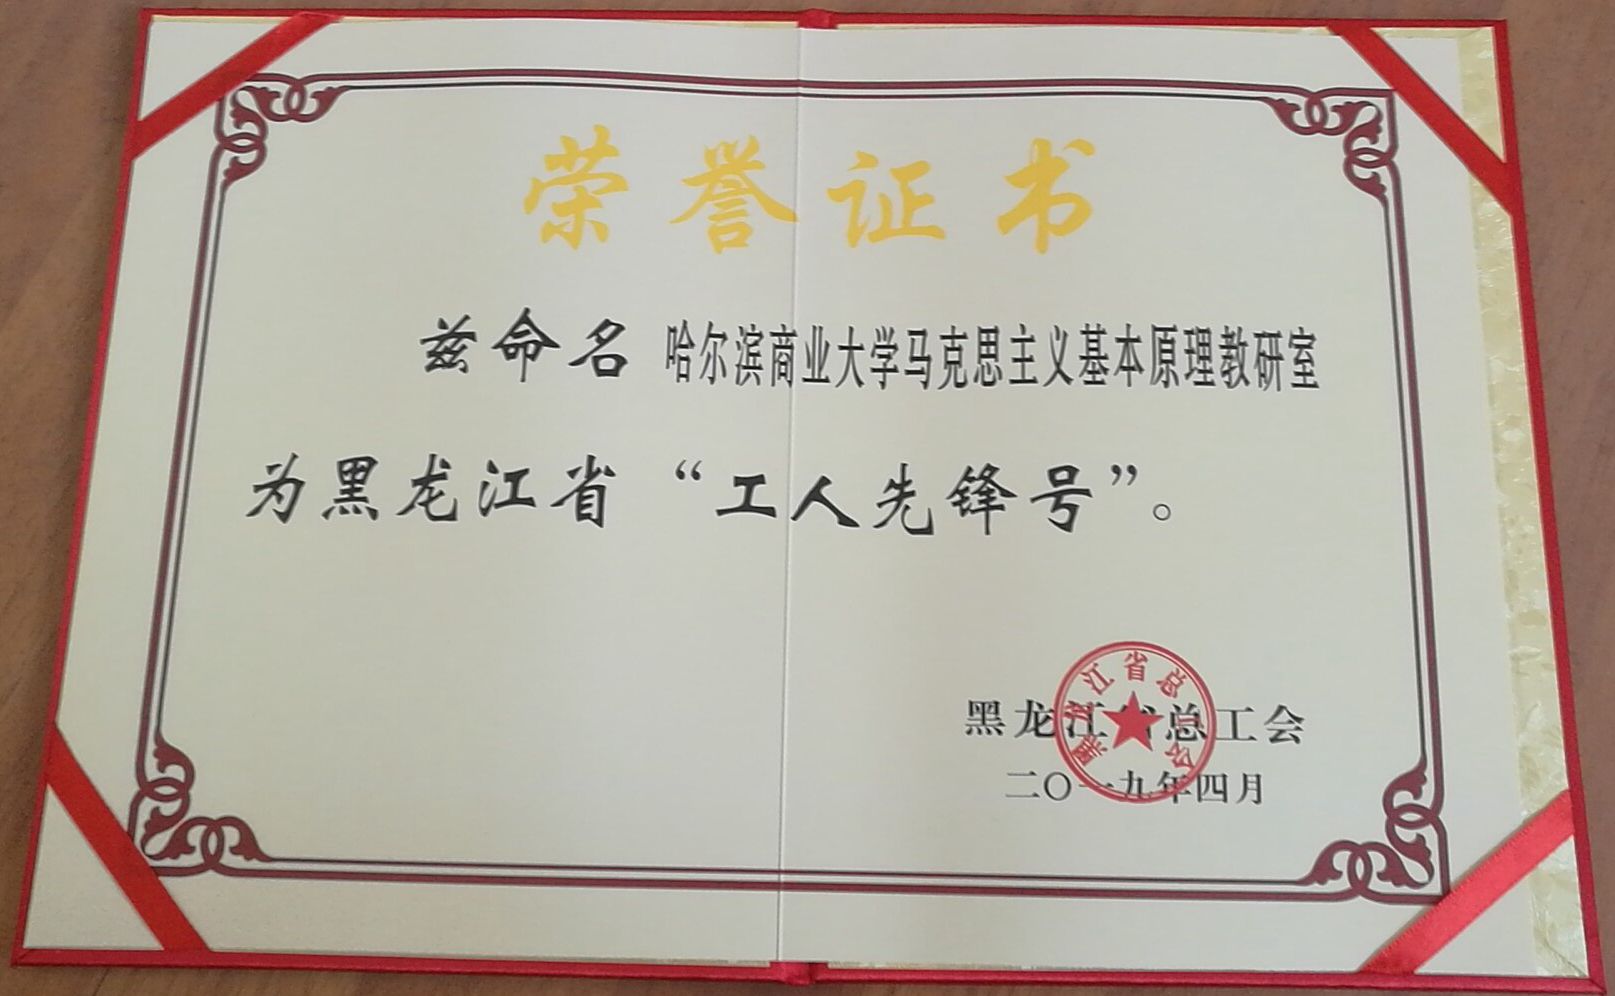 荣誉证书
兹命名 哈尔滨商业大学马克思主义基本原理教研室
为黑龙江省“工人先锋号”。
黑龙江省总工会
二〇一九年四月
黑龙江省总工会